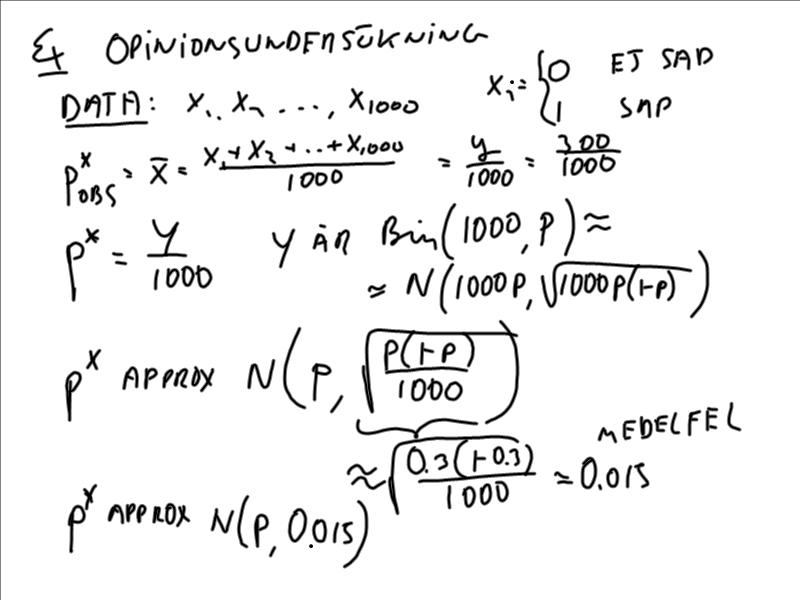 Ex OPINIONSUNDERSÖKNING
DATA: x₁, x₂ ..., x₁₀₀₀
xᵢ = { 0 EJ SAP
1 SAP
p*OBS = x̄ = (x₁ + x₂ + ... + x₁₀₀₀)/1000 = y/1000 = 300/1000
p* = Y/1000 Y ÄR Bin(1000, p) ≈
≈ N(1000p, √(1000p(1-p)))
p* APPROX N(p, √(p(1-p)/1000))
≈ √(0.3(1-0.3)/1000) ≈ 0.015 MEDELFEL
p* APPROX N(p, 0.015)